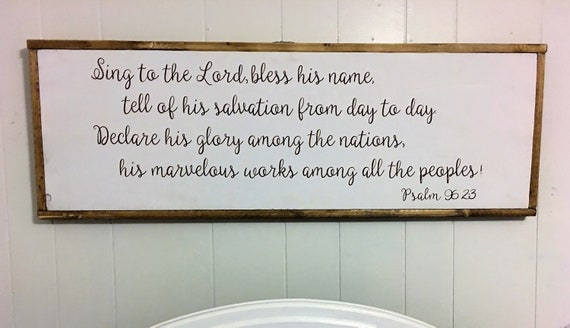 Sing to the Lord, bless his name,
tell of his salvation from day to day.
Declare his glory among the nations,
his marvelous works among all the peoples!
Psalm 96:23